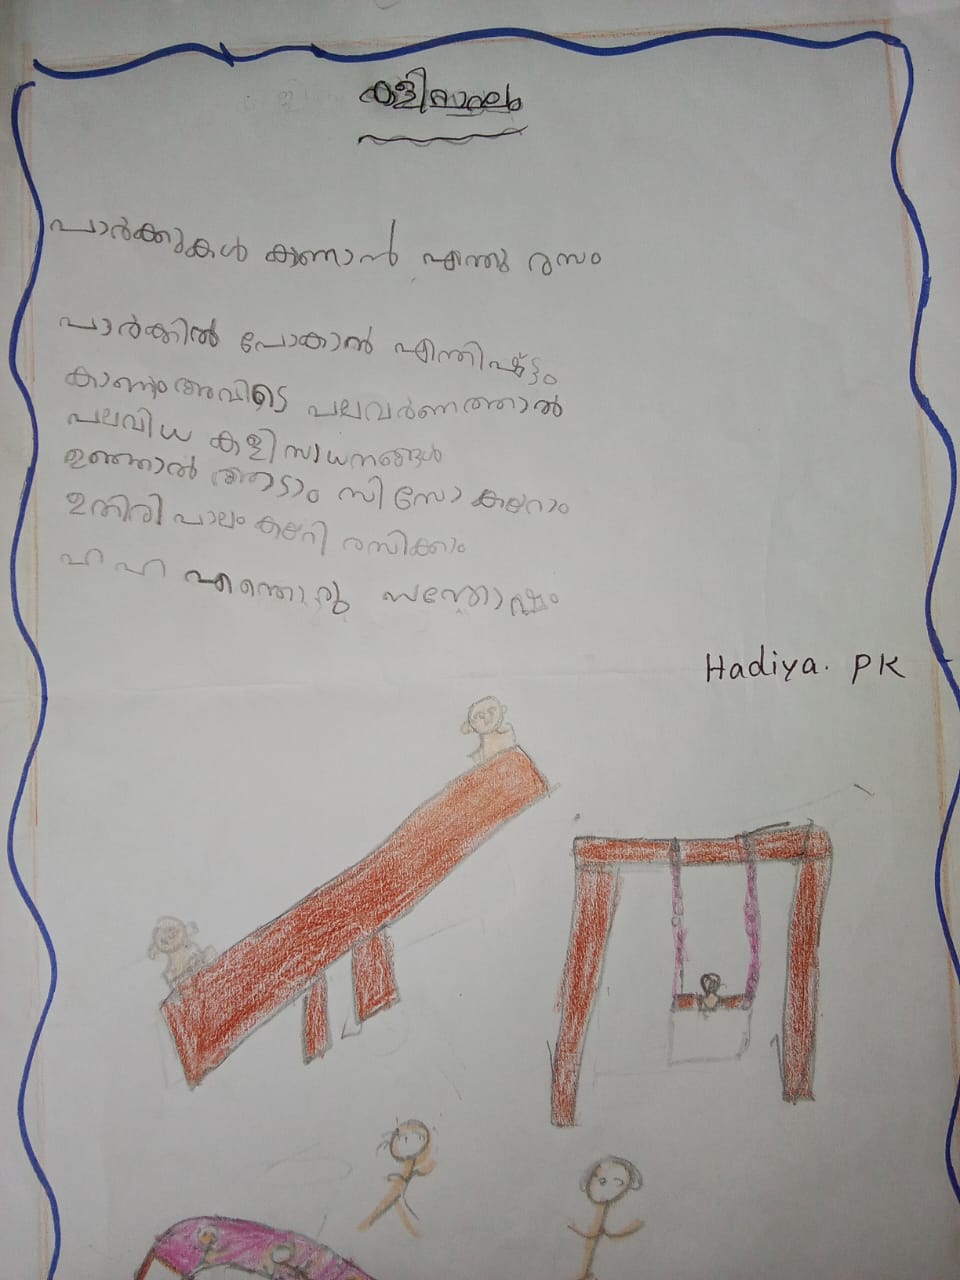 കളിസ്ഥലം
പാർക്കുകൾ കാണാൻ എന്തു രസം
പാർക്കിൽ പോകാൽ എന്തിഷ്ട്ടം
കാണും അവിടെ പലവർണത്താൽ
പലവിധ കളിസാധനങ്ങൾ
ഊഞ്ഞാൽ ആടാം സീസോ കയറാം
ഉതിരി പാലം കയറി രസിക്കാം
ഹ ഹ എന്തൊരു സന്തോഷം
Hadiya. PK